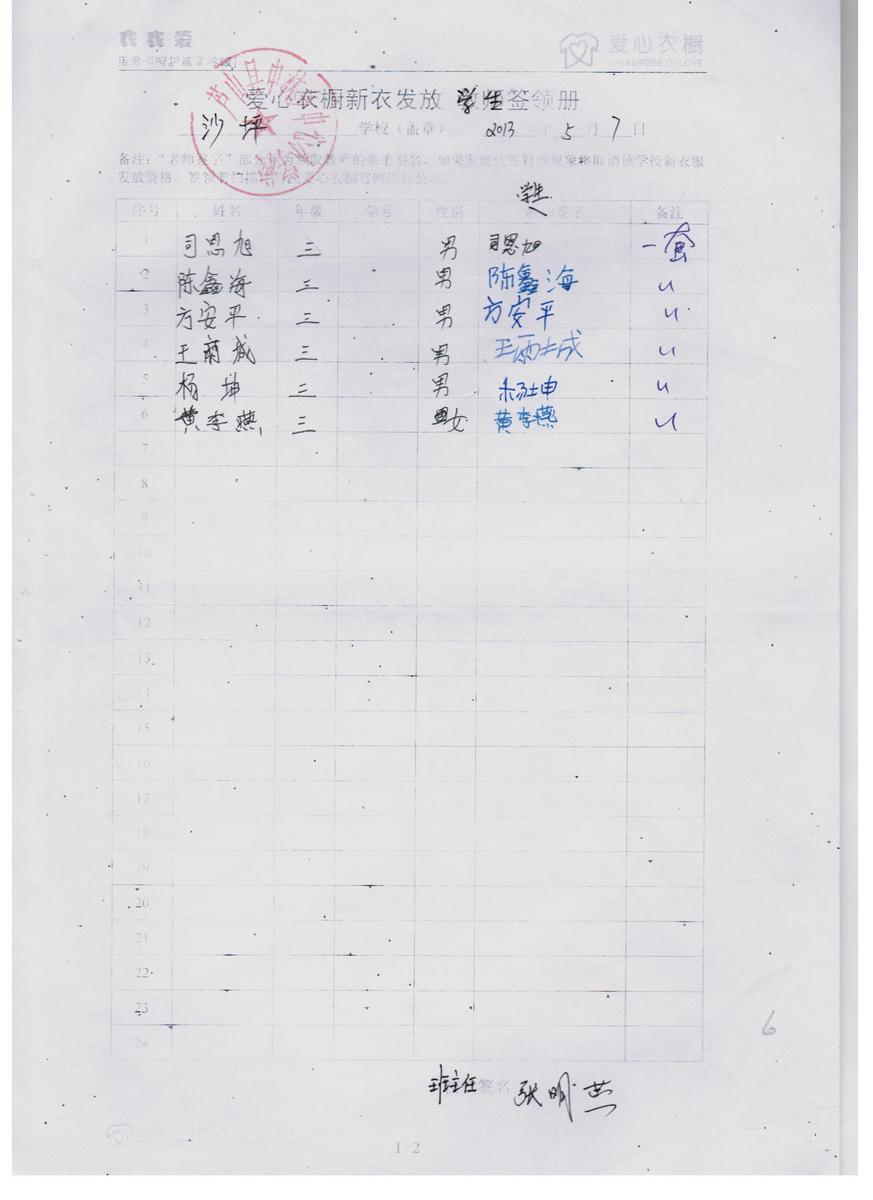 衣衣爱
爱心衣橱
WARDROBE OF LOVE
爱心衣橱新衣发放 学生 师签领册
沙坪 学校（盖章） 2013 年 5 月 7 日
备注：“老师签字”部分 教师的亲笔签名，如果发现代签冒领现象将取消该学校新衣服
发放资格。签领册扫描 爱心衣橱官网进行公示。
学生
序号 姓名 年级 学号 性别 签字 备注
1 司恩旭 三 男 司恩旭 一套
2 陈鑫海 三 男 陈鑫海 〃
3 方安平 三 男 方安平 〃
4 王 成 三 男 王 成 〃
5 杨坤 三 男 杨坤 〃
6 黄李燕 三 女 黄李燕 〃
7
8
9
10
11
12
13
14
15
16
17
18
19
20
21
22
23
24
6
班主任 签名 张明燕
1 2